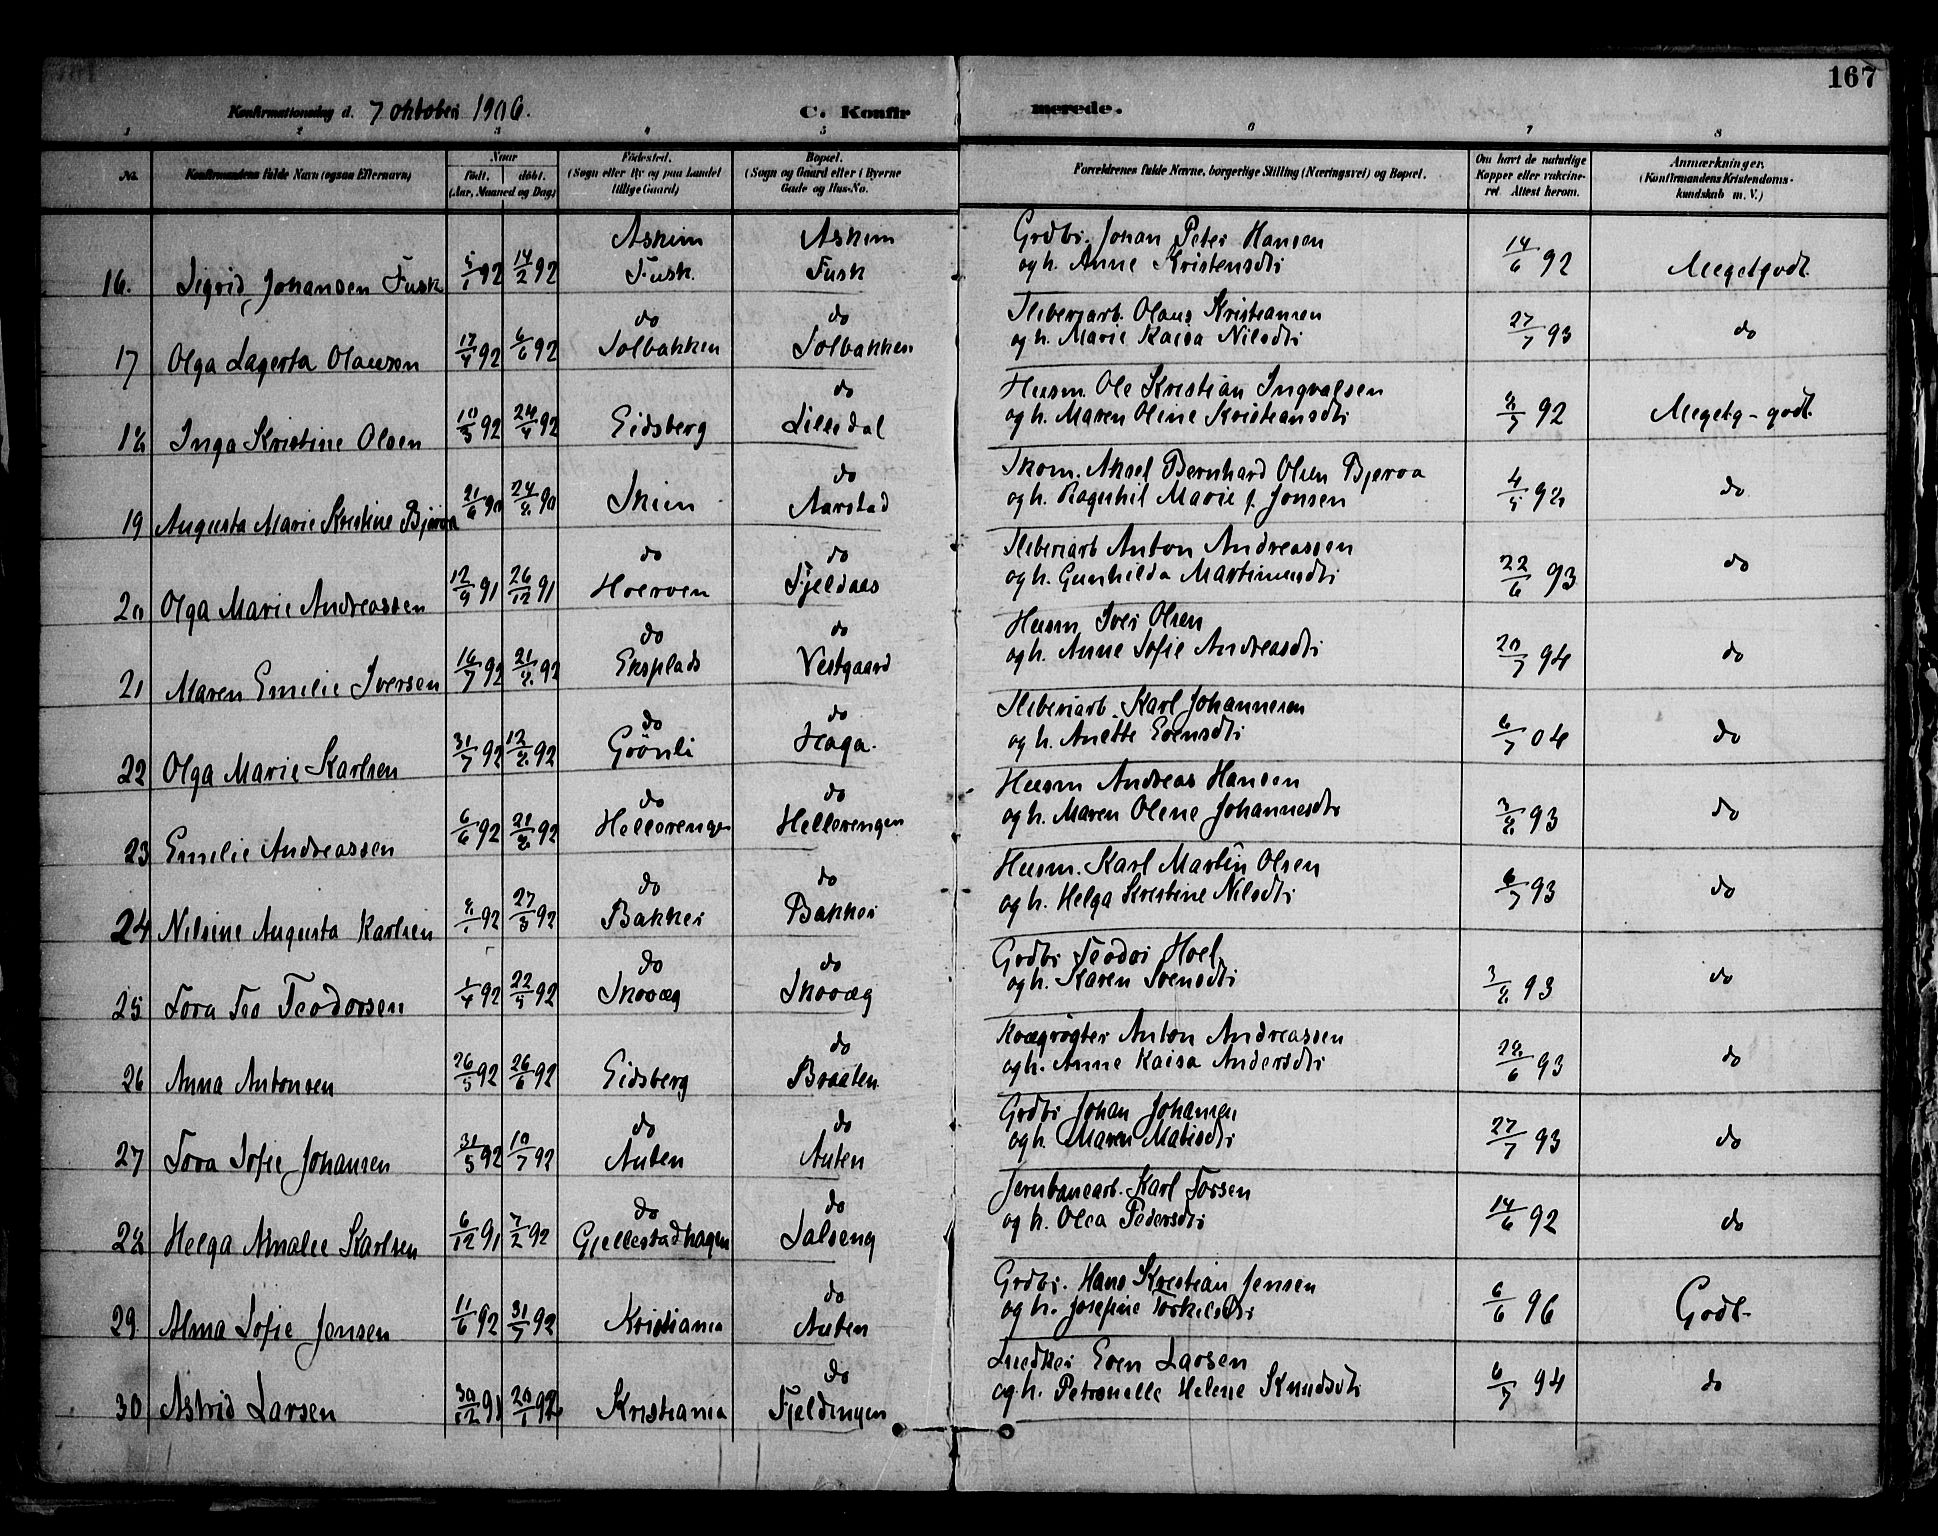 167
Konfirmationsdag d. 7 oktober 1906. C. Konfirmerede.
1 2 3 4 5 6 7 8
No. Konfirmandens fulde Navn (ogsaa Efternavn) Naar født. døbt. (Aar, Maaned og Dag) Fødested. (Sogn eller By og paa Landet tillige Gaard) Bopæl. (Sogn og Gaard eller i Byerne Gade og Hus-No. Forældrenes fulde Navne, borgerlige Stilling (Næringsvei) og Bopæl. Om havt de naturlige Kopper eller vaccineret Attest herom. Anmærkninger. (Konfirmandens Kristendomskundskab m. V.)
Askim Askim Grdbr. Johan Peter Hansen
16. Sigrid Johansen Fusk 5/1 92 14/2 92 Fusk Fusk og h. Anne Kristensdtr 14/6 92 Megetgodt.
do do Sliberiarb. Olaus Kristiansen
17 Olga Lagerta Olaussen 17/4 92 6/6 92 Solbakken Solbakken og h. Marie Kaisa Nilsdtr 27/7 93 do
do Husm. Ole Kristian Ingvalsen
18 Inga Kristine Olsen 10/3 92 24/4 92 Eidsberg Lillidal og h. Maren Oline Kristiansdtr 8/7 92 Megetg-godt.
do Skom. Aksel Bernhard Olsen Bjerva
19 Augusta Marie Kristine Bjerva 21/6 90 24/8 90 Skien Aarstad og h. Ragnhil Marie f. Jonsen 4/5 92 do
do do Sliberiarb Anton Andreassen
20 Olga Marie Andreassen 12/9 91 26/12 91 Hoerven Fjeldaas og h. Gunhilda Martinusdtr 22/6 93 do
do do Husm Iver Olsen
21 Maren Emilie Iversen 16/7 92 21/8 92 Eksplads Vestgaard og h. Anne Sofie Andreasdtr 20/7 94 do
do do Sliberiarb. Karl Johannesen
22 Olga Marie Karlsen 31/7 92 12/8 92 Grönli Haga. og h. Anette Evensdtr 6/7 04 do
do do Husm Andreas Hansen
23 Emilie Andreassen 6/6 92 21/8 92 Hellerengen Hellerengen og h. Maren Olene Johannesdtr 3/8 93 do
do do Husm. Karl Martin Olsen
24 Nilsine Augusta Karlsen 8/1 92 27/3 92 Bakker Bakker og h. Helga Kristine Nilsdtr 6/7 93 do
do do Grdbr Teodor Hoel
25 Tora Teo Teodorsen 1/4 92 22/5 92 Skovæg Skovæg og h. Karen Svensdtr 3/8 93 do
do Kvægrögter Anton Andreassen
26 Anna Antonsen 26/5 92 26/6 92 Eidsberg Braaten og h. Anne Kaisa Andersdtr 28/6 93 do
do do Grdbr Johan Johansen
27 Tora Sofie Johansen 31/5 92 10/7 92 Auten Auten og h. Maren Matisdtr 27/7 93 do
do do Jernbanearb. Karl Torsen
28 Helga Amalie Karlsen 6/12 91 7/2 92 Gjellestadhagen Salseng og h. Olea Pedersdtr 14/6 92 do
do Grdbr. Hans Kristian Jensen
29 Alma Sofie Jensen 11/6 92 31/7 92 Kristiania Auten og h. Josefine Torkilsdtr 6/6 96 Godt-
do Snedker Even Larsen
30 Astrid Larsen 30/12 91 20/1 92 Kristiania Fjeldingen og h. Petronelle Helene Knudsdtr 6/7 94 do